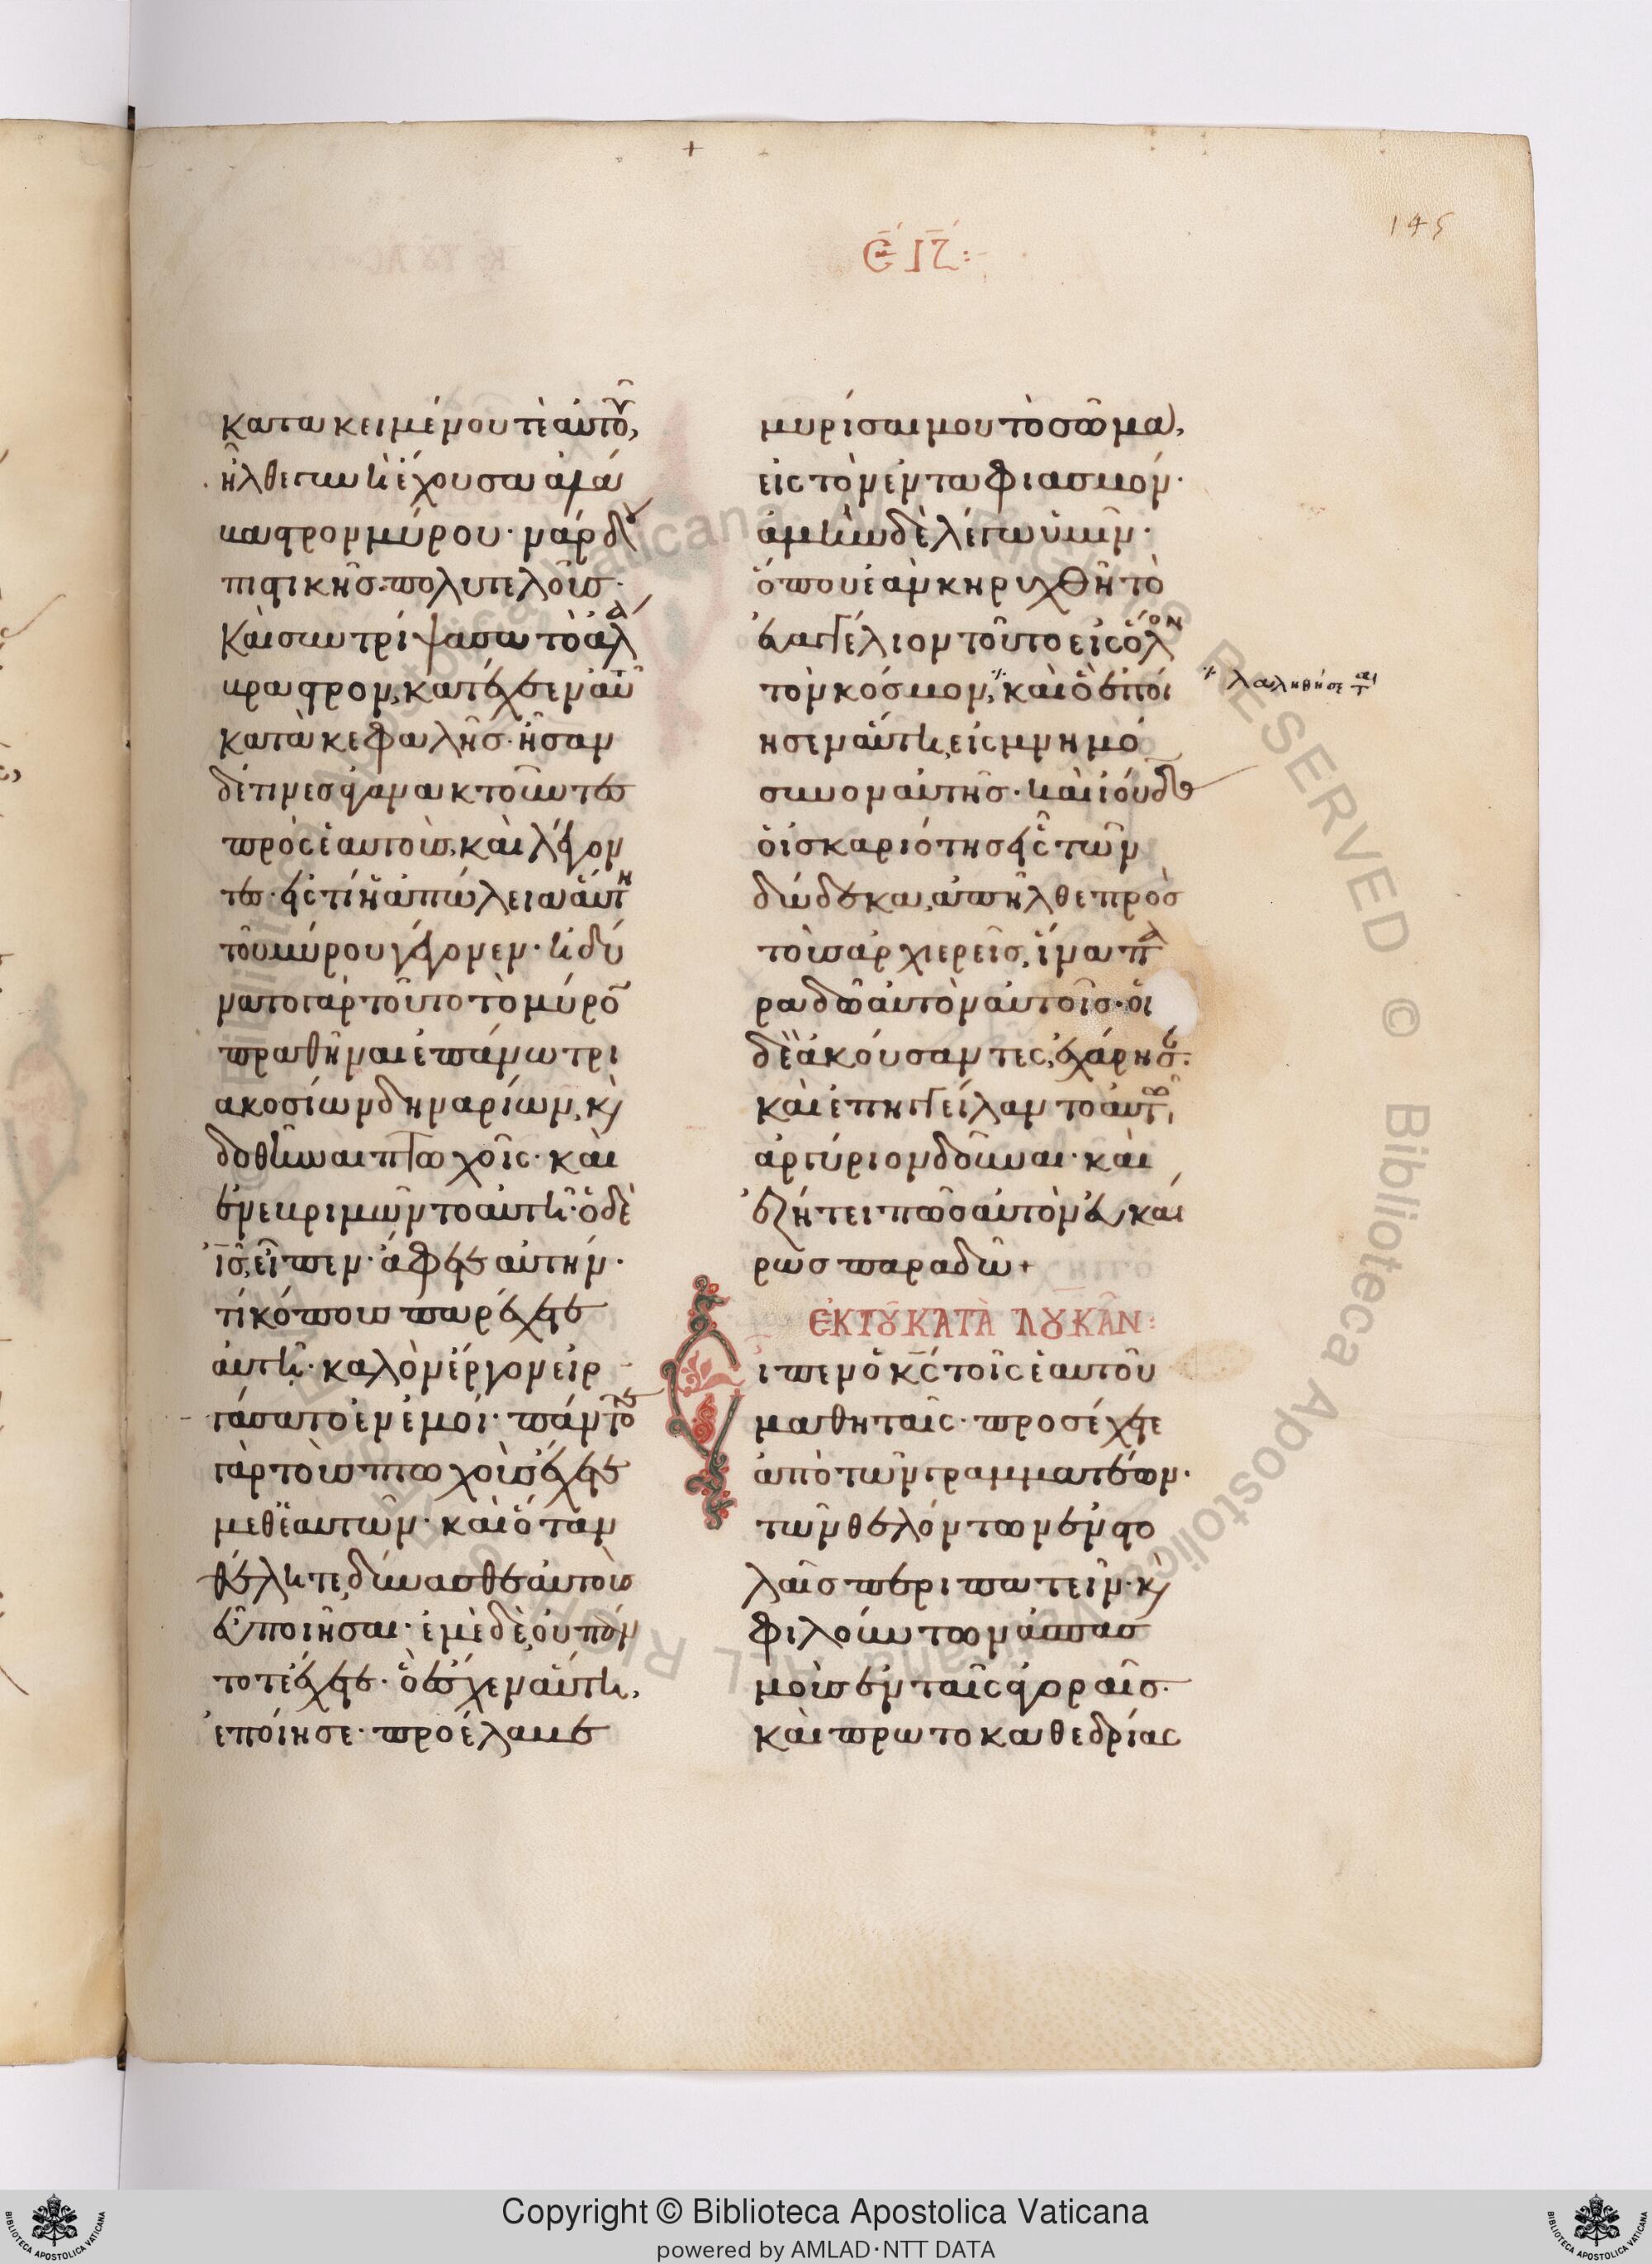 145
Ε ΙΖ:
κατακειμένου τὲ αὐτοῦ,
ἦλθε γυνὴ ἔχουσα ἀλά
βαστρον μύρου· νάρδου
πιστικῆς πολυτελοῦς·
καὶ συντρίψασα τὸ ἀλά
βαστρον, κατέχεεν αὐτοῦ
κατὰ κεφαλῆς· ἦσαν
δέ τινες ἀγανακτοῦντες
πρὸς ἑαυτούς, καὶ λέγον
τες· εἰς τί ἡ ἀπώλεια αὕτη
τοῦ μύρου γέγονεν· ἠδύ
νατο γὰρ τοῦτο τὸ μύρον
πραθῆναι ἐπάνω τρι
ακοσίων δηναρίων, κὶ
δοθῆναι πτωχοῖς· καὶ
ἐνεβριμῶντο αὐτῇ· ὁ δὲ
ις εἶπεν· ἄφετε αὐτήν·
τί κόπους παρέχετε
αὐτῇ· καλὸν ἔργον εἰρ
γάσατο ἐν ἐμοί· πάντοτε
γὰρ τοὺς πτωχοὺς ἔχετε
μεθ' ἑαυτῶν· καὶ ὅταν
θέλητε, δύνασθε αὐτοὺς
εὖ ποιῆσαι· ἐμὲ δὲ, οὐ πάν
τοτε ἔχετε· ὃ ἔσχεν αὕτη,
ἐποίησε· προέλαβε
μυρίσαι μου τὸ σῶμα,
εἰς τὸν ἐνταφιασμόν·
ἀμὴν δὲ λέγω ὑμῖν·
ὅπου ἐὰν κηρυχθῇ τὸ
εὐαγγέλιον τοῦτο εἰς ὅλον
τὸν κόσμον, καὶ ὃ ἐποί
λαληθήσεται
ησεν αὕτη, εἰς μνημό
συνον αὐτῆς· καὶ ἰούδας
ὁ ἰσκαριότης εἷς τῶν
δώδεκα, ἀπῆλθε πρὸς
τοὺς ἀρχιερεῖς, ἵνα πα
ραδῶ αὐτὸν αὐτοῖς· οἱ
δὲ ἀκούσαντες, ἐχάρησαν·
καὶ ἐπηγγείλαντο αὐτῷ
ἀργύριον δοῦναι· καὶ
ἐζήτει πῶς αὐτὸν εὐκαί
ρως παραδῶ+
ΕΚ ΤΟΥ ΚΑΤΑ ΛΟΥΚΑΝ:
Εἶπεν ὁ κς τοῖς ἑαυτοῦ
μαθηταῖς· προσέχετε
ἀπὸ τῶν γραμματέων·
τῶν θελόντων ἐν στο
λαῖς περιπατεῖν· κὶ
φιλούντων ἀσπασ
μοὺς ἐν ταῖς ἀγοραῖς·
καὶ πρωτοκαθεδρίας
Copyright © Biblioteca Apostolica Vaticana
powered by AMLAD·NTT DATA